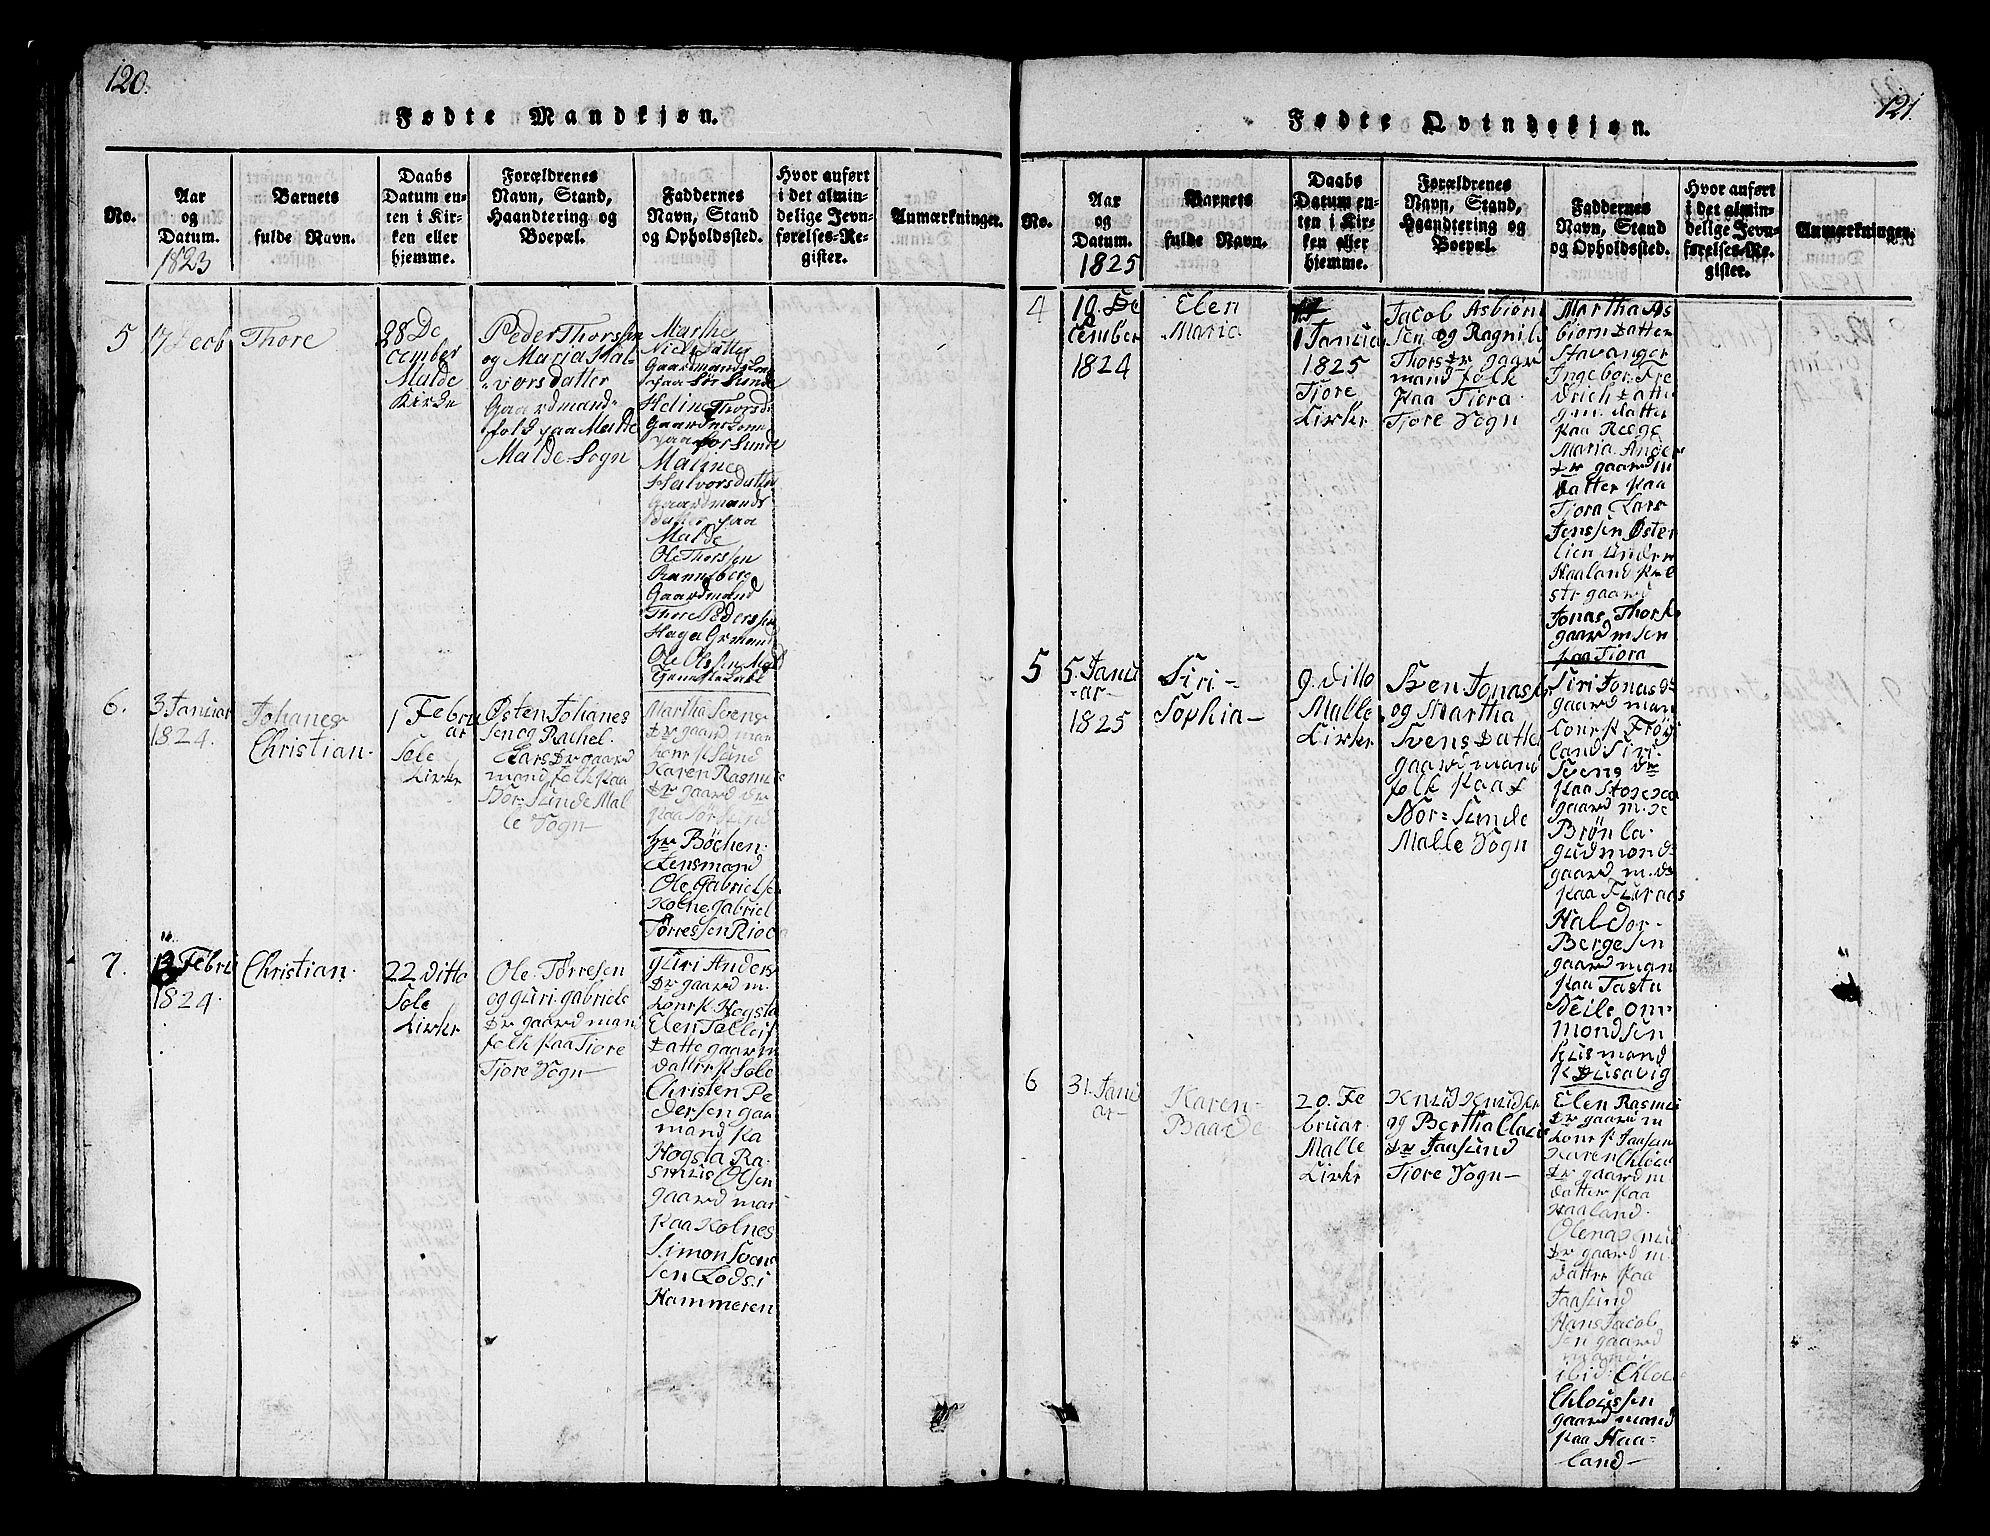 120.
Fødte Mandkjøn.
No.
Aar
og
Datum.
1823
Barnets
fulde Navn.
Daabs
Datum en-
ten i Kir-
ken eller
hjemme.
Forældrenes
Navn, Stand,
Haandtering og
Boepæl.
Faddernes
Navn, Stand
og Opholdssted.
Hvor anført
i det almin-
delige Jevn-
førelses-Re-
gister.
Anmærkninger.
5
Thore
28 De
cember
Malde
Kirke
Peder Thorssen
og Maria Hal
vorsdatter
Gaardmand-
folk paa Malde
Malde Sogn
Marthe
Niels Datter
paa Sør Sunde
Heline Thorsdr
Maline
Halvorsdatter
Gaardmands
datter paa
Malde
Ole Thorssen
Ranneberg
Gaardmand
Thore Pederssen
Haga Grmand
6.
3 Januar
1824.
Johanes
Christian.
1 Febru
ar
Sole
Kirke
Østen Johanes
sen og Rachel
Lars Dr gaard
mand folk paa
Nor Sunde Mal
le Sogn
Martha Svens
Dr gaard man
kone p Sund
Karen Rasmus
Dr gaard dr
paa Sør Sund
Hr Böchen
Lensmand
Ole Gabrielsen
Kolne Gabriel
Tørressen
7.
13 Febru
1824.
Christian.
22 Ditto
Sole
Kirke
Ole Tørresen
og guri gabriels
Dr gaard man
folk paa Tiore
Tiore Sogn
guri Anders
Dr gaard m.
kone p. Hogsta
Elen Tolleif
Datte gaar m
datter p Sole
Christen Pe
dersen gaa
mand pa
Hogsta Ra-
smus Olsen
gaard man
paa Kolnes
Simon Svend
sen Lods i
Hammeren
121.
Fødte Qvindekjøn.
No.
Aar
og
Datum.
1825
Barnets
fulde Navn.
Daabs
Datum en-
ten i Kir-
ken eller
hjemme.
Forældrenes
Navn, Stand,
Haandtering og
Boepæl.
Faddernes
Navn, Stand
og Opholdssted.
Hvor anført
i det almin-
delige Jevn-
førelses-Re-
gister.
Anmærkninger.
4
19. De
cember
1824
Elen
Maria
1 Januar
1825
Tiore
Kirke
Jacob Asbiørn
sen og Ragnild
Thors Dr gaar
mand folk
paa Tiora
Tiore Sogn
Martha As
biørn Datter
Stavanger
Ingebor Fre
drich Datter
g.m. datter
paa Reege
Maria Ander
Dr gaard m
datter paa
Tiora Lars
Jenssen Øster
lien under
Haaland Pre
ste gaard
Jonas Thors
gaard m sen
paa Tiora
5
5. Janu
-ar-
1825
Siri-
Sophia-
9. ditto
Malle
Kirke
Sven Jonas
og Martha
Svens Datter
gaard mand
folk paa
Nor= Sunde
Malle Sogn
Siri Jonas Dr
gaard man
kone p. Frøy
land Siri
Svens Dr
gaard m. de
Brønla
gudmond
gaard m. d
paa
Haldor
Bergesen
gaard man
paa Tastu
Neile Om
mondsen
husmand
p Dusavig
6
31. Janu
ar-
Karen-
Baarde
20. Fe
bruar
Malle
Kirke
Knud Knudsen
og Bertha Claus
Dr Jaasund
Tiore Sogn-
Elen Rasmus
Dr gaard m
kone p Jaasun
Karen
Dr gaard m
datter paa
Haaland.
Dr gaard m
datter paa
Jaasund
Hans Jacob
sen gaard
mand.
ibid.
Chloussen
gaard mand
paa Haa=
land-